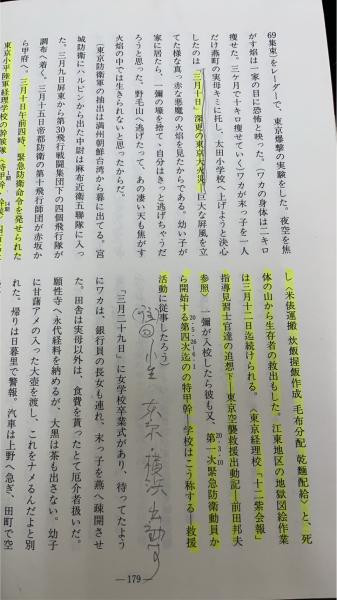 69集束)をレーダーで、東京爆撃の実験をした。夜空を焦
がす焔は一家の目に恐怖と映った。(ワカの身体は二キロ
痩せた。三ケ月で七キロ痩せていく)ワカが末っ子を一人
だけ燕町の実母キミに托し、太田小学校へ上げようと決心
したのは「三月十日」深更の東京大火災…巨大な屏風を立
てた様な真っ赤な悪魔の火焔を見たからである。幼い子が
家に居たら、一彌の壕を捨て、自分はきっと逃げちゃうだ
ろうと思った。野毛山へ逃げたって、あの凄い天も焦がす
火焔の中では生きられないと思ったからだ。
〔東京防衛軍の抽出は満州朝鮮台湾から暮に出てる。宮
城防衛にハルビンから出た中尉は麻布近衛聯隊に入っ
た。三月九日屏東から第30飛行戦闘集団下の四個飛行隊が
調布へ着く。三月十五日帝都防衛の第十飛行師団が赤坂か
ら甲府へ。三月十日午前四時、緊急防衛命令を発せられた
東京小平陸軍経理学校の幹候隊
し〈米俵運搬 炊飯握飯作成 毛布分配 乾麺配給〉と、死
体の山から生存者の救出もした。江東地区の地獄図絵作業
は三月十二日迄続けられる。〈東京経理校「十二紫会報」
指導見習士官達の追想下―東京空襲救援出動記―前田邦夫
参照〉一彌が入校したら彼も又、第一次緊急防衛動員か
ら開始する第四次迄の特甲幹―学校はこう称する―救援
活動に従事したろう〕
小生 東京・横浜 出動す
「三月二十九日」に女学校卒業式があり、待ってたよう
にワカは、銀行員の長女も連れ、末っ子を燕へ疎開させ
た。田舎は実母以外は、食費を貰ったとて厄介者扱いだ。
願性寺へ永代経料を納めるが、大黒は茶も出さない。幼子
に甘藷アメの入った大壺を渡し、これをナメるんだよと別
れた。帰りは日暮里で警報。汽車は上野へ急ぎ、田町で空
―179―